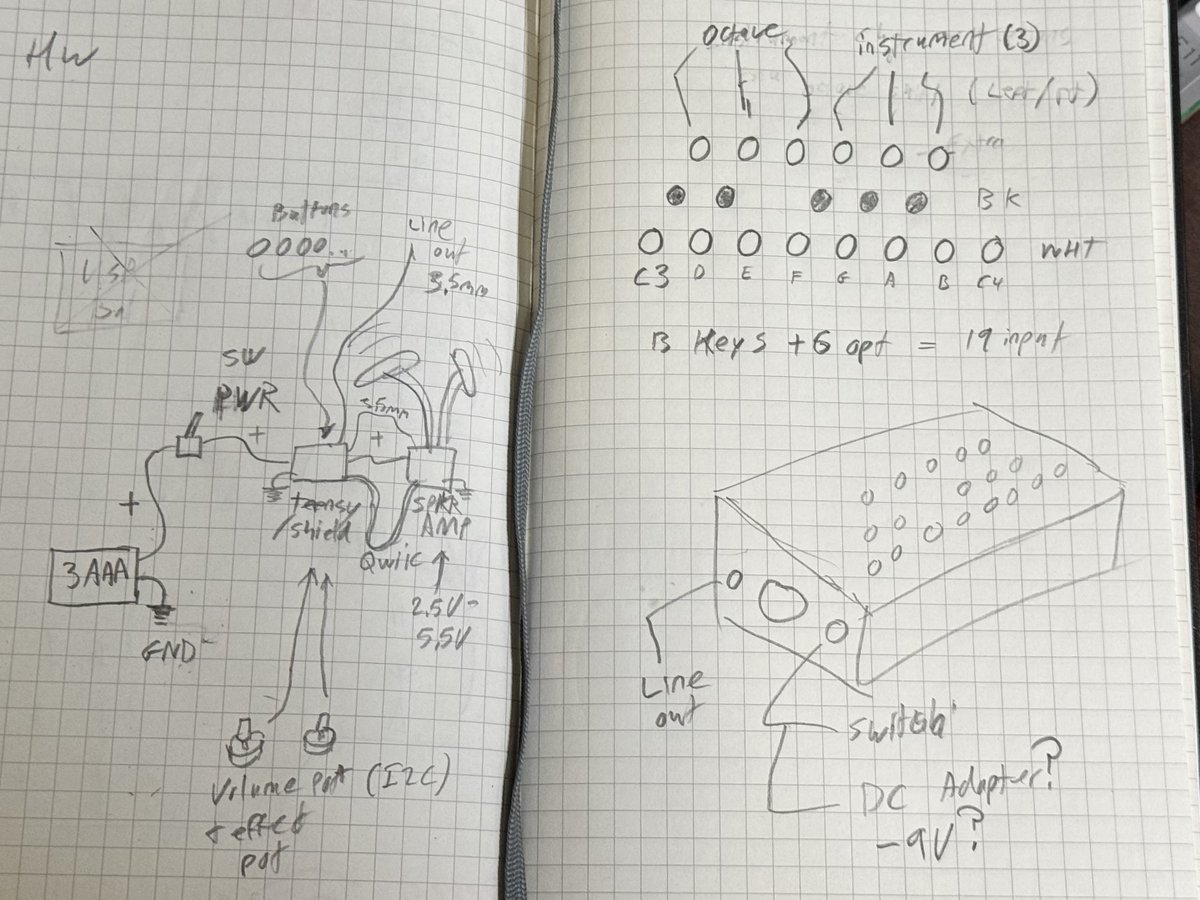 HW
Buttons
Line
out
3.5mm
SW
PWR
+
3.5mm
+
+
teensy
/shield
SPKR
AMP
Qwiic
3 AAA
2.5V-
5.5V
GND -
Volume pot (I2C)
+ effect
pot
Octave
instrument (3)
(Left/rt)
BK
WHT
C3 D E F G A B C4
13 Keys + 6 opt = 19 input
Line
out
Switch
DC Adapter?
- 9V?